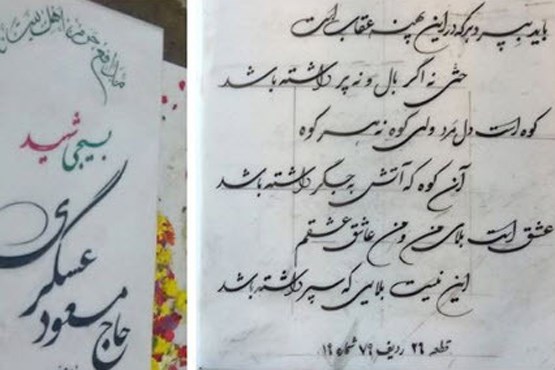 مدافع حریم اهل بیت
بسیجی شهید
حاج مسعود عسکری
باید بپرد هر که در این پهنه عقاب است
حتی نه اگر بال و نه پر داشته باشد
کوه است دل مرد ولی کوه نه هر کوه
آن کوه که آتش به جگر داشته باشد
عشق است بلای من و من عاشق عشقم
این نیست بلایی که سپر داشته باشد
قطعه ۲۶ ردیف ۷۹ شماره ۱۹